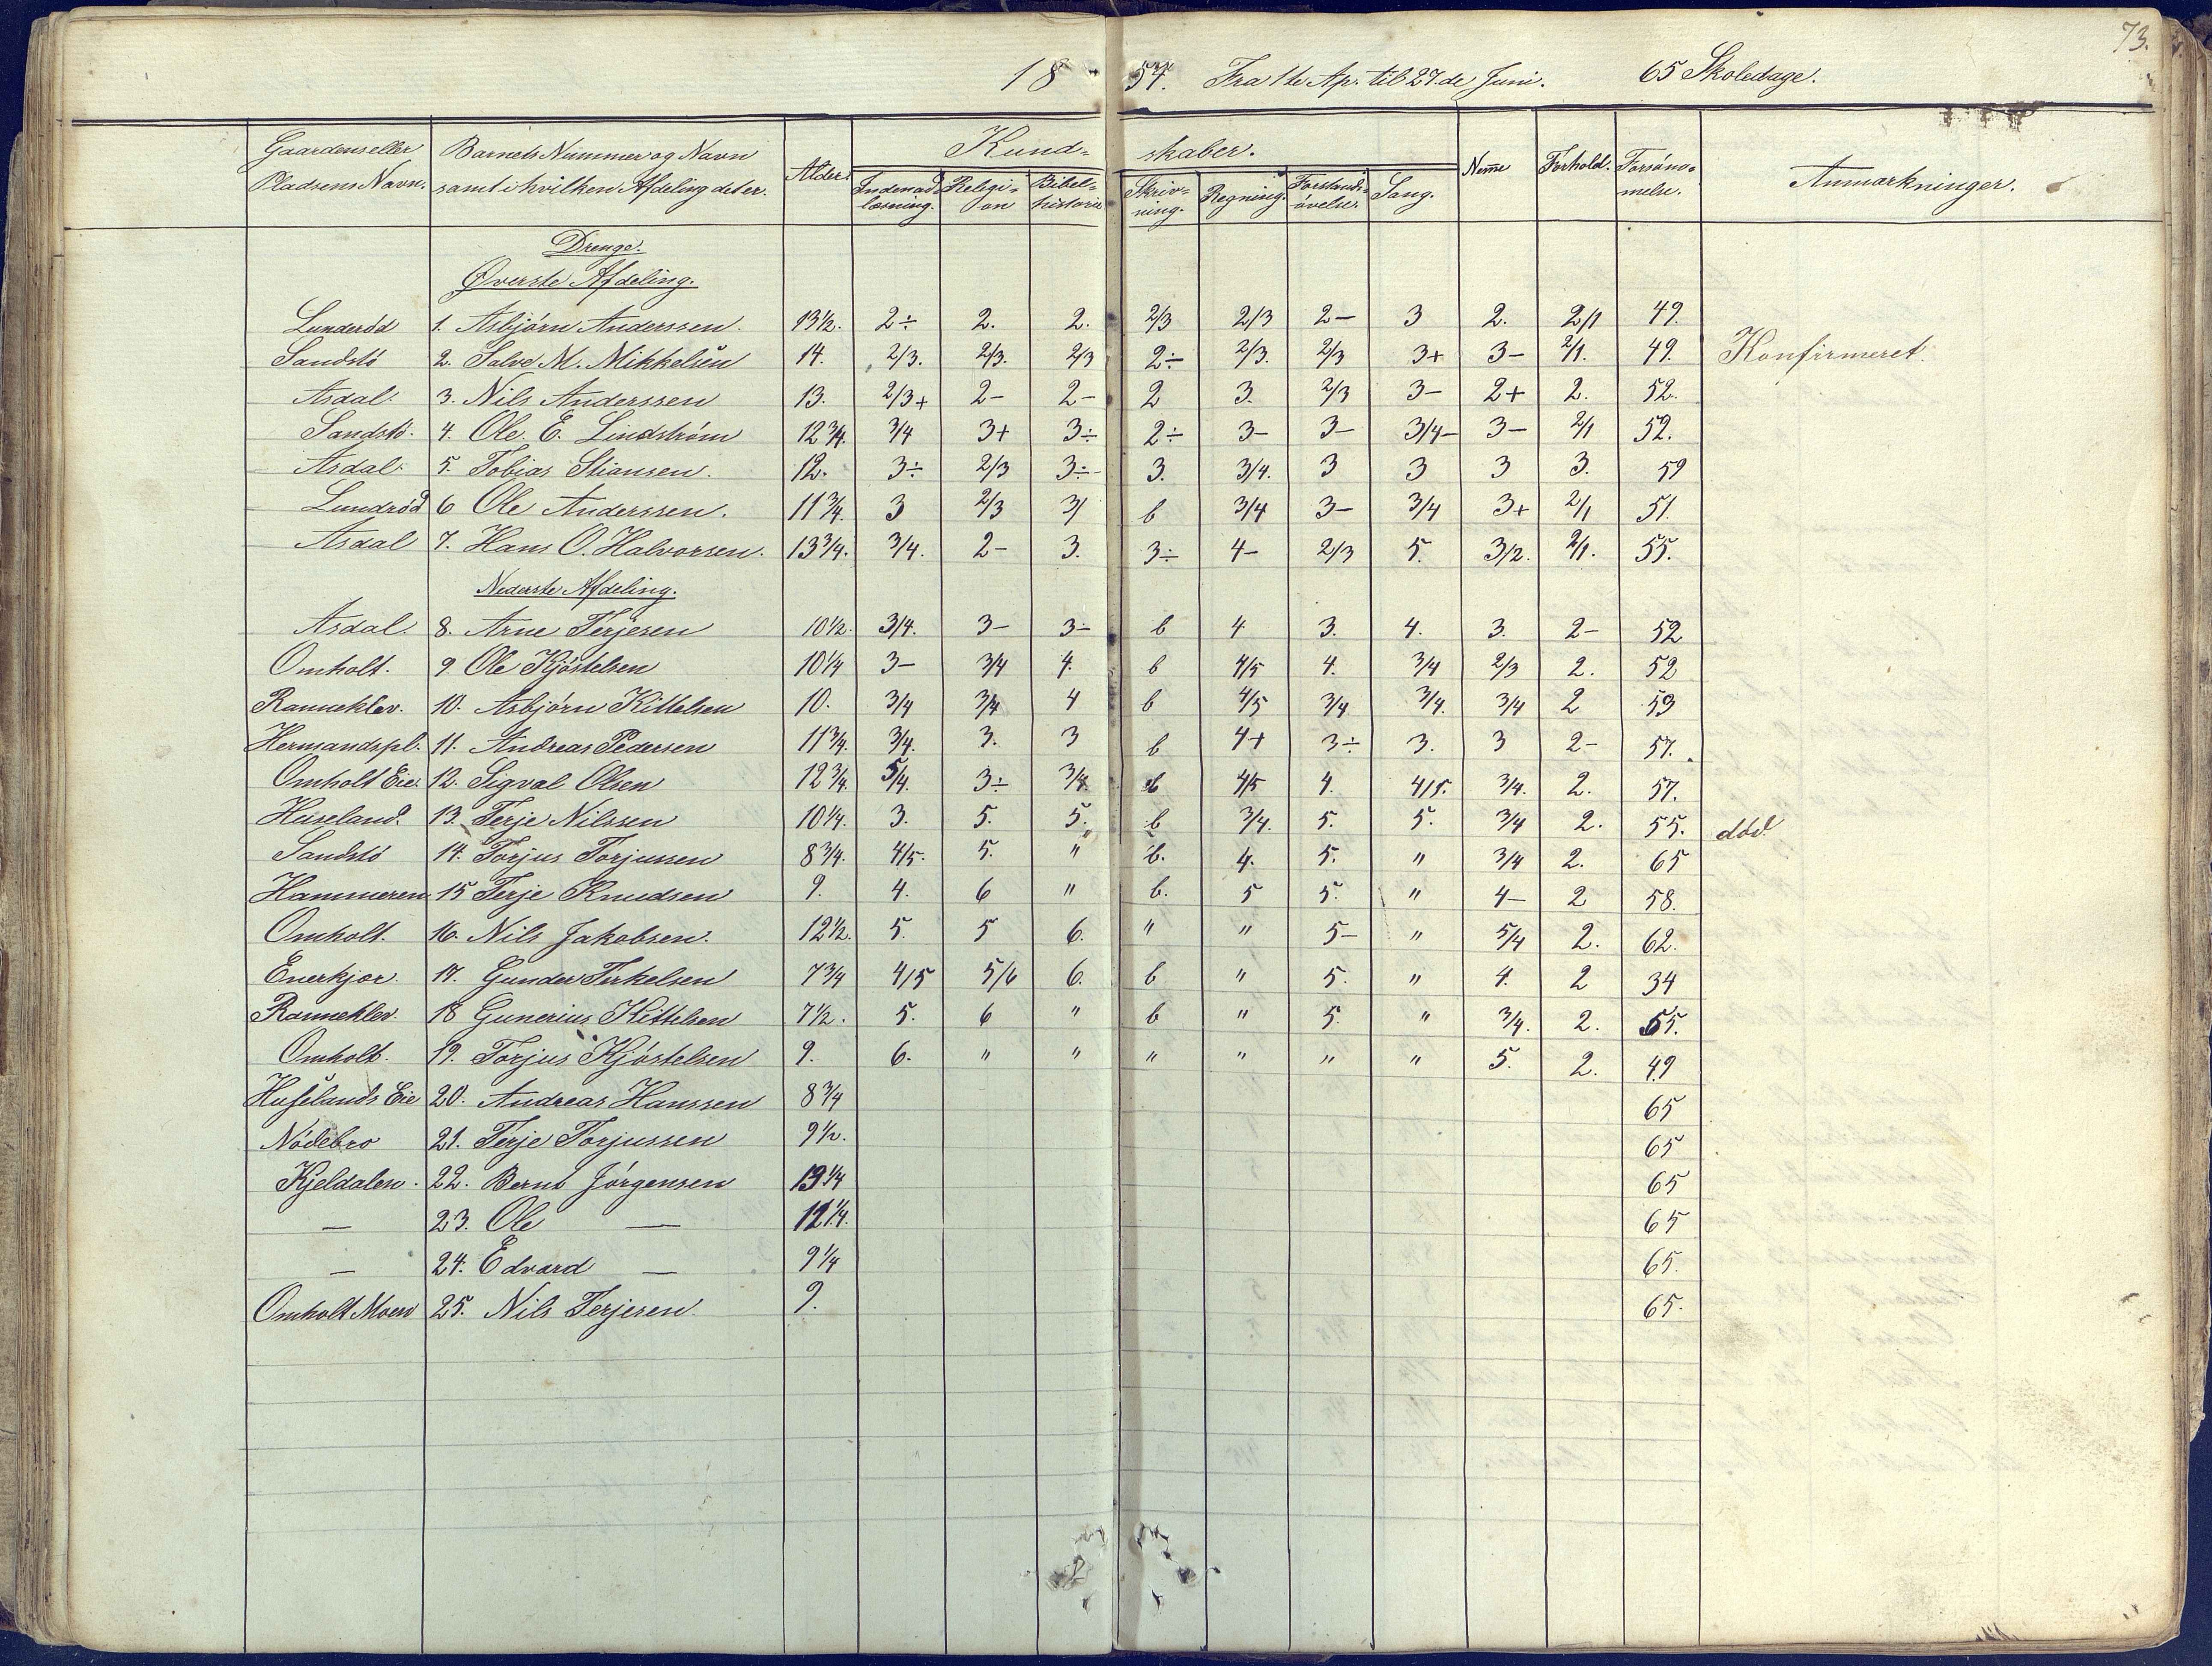 73.
1854. Fra 1ste Ap. til 27.de Juni. 65 Skoledage.
Gaardens eller Pladsens Navn. | Barnets Nummer og Navn samt i hvilken Afdeling det er. | Alder. | Kundskaber. | Nem̄e | Forhold. | Forsömmelse. | Anmærkninger.
Indenadlæsning. | Religion | Bibelhistorie | Skrivning. | Regning. | Forstandsövelse. | Sang.
Drenge.
Øverste Afdeling.
Lunderöd 1. Asbjörn Anderssen. 13½. 2÷ 2. 2. 2/3 2/3 2- 3 2. 2/1 49.
Sandstö 2. Salve M. Mikkelsen 14. 2/3. 2/3. 2/3 2÷ 2/3. 2/3 3+ 3- 2/1. 49. Konfirmeret.
Asdal. 3. Nils Anderssen 13. 2/3+ 2- 2- 2 3. 2/3 3- 2+ 2. 52.
Sandstö. 4. Ole. E. Lindström 12¾. 3/4 3+ 3÷ 2÷ 3- 3- 3/4- 3- 2/1 52.
Asdal. 5. Tobias Stiansen. 12. 3÷ 2/3 3÷ 3. 3/4. 3 3 3 3. 59
Lundröd 6 Ole Anderssen. 11¾. 3 2/3 3/ b 3/4 3- 3/4 3+ 2/1 51.
Asdal 7. Hans O. Halvorsen. 13¾. 3/4. 2- 3. 3÷ 4- 2/3 5. 3/2. 2/1. 55.
Nederste Afdeling.
Asdal. 8. Arne Terjesen 10½. 3/4. 3- 3- b 4 3. 4. 3. 2- 52
Omholt. 9. Ole Kjöstelsen 10¼ 3- 3/4 4. b 4/5 4. 3/4 2/3 2. 52
Rannekler. 10. Asbjörn Kittelsen 10. 3/4 3/4 4 b 4/5 3/4 3/4. 3/4 2 59
Hermandspl. 11. Andreas Pedersen 11¾. 3/4. 3. 3 b 4+ 3÷ 3. 3 2- 57.
Omholt Eie. 12. Sigval Olsen 12¾. 5/4. 3÷ 3/4 b 4/5 4. 4/5. 3/4. 2. 57.
Huseland. 13. Terje Nilssen 10¼. 3. 5. 5. b 3/4. 5. 5. 3/4 2. 55. död
Sandstö 14. Torjus Torjussen 8¾. 4/5. 5. " b. 4. 5. " 3/4 2. 65
Hammeren. 15 Terje Knudsen 9. 4. 6 " b. 5 5. " 4- 2 58.
Omholt. 16. Nils Jakobsen. 12½. 5. 5 6. " " 5- " 5/4 2. 62.
Enerkjær. 17. Gunder Terkelsen 7¾ 4/5 5/6 6. b " 5. " 4. 2 34
Rannekler. 18 Gunerius Kittelsen 7½. 5. 6 " b " 5. " 3/4. 2. 55.
Omholt. 19. Torjus Kjöstelsen 9. 6. " " " " " " 5. 2. 49
Huselands Eie 20. Andreas Hanssen 8¾ 65
Nödebro 21. Terje Torjussen 9½. 65
Kjeldalen. 22. Bernt Jörgensen 13¼ 65
— 23. Ole — 12¼. 65
— 24. Edvard — 9¼ 65.
Omholt Moen 25. Nils Terjesen. 9. 65.